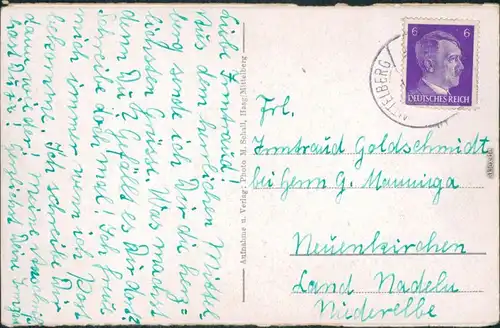 Liebe Irmtraud!
Aus dem herrlichen Mittel
berg sende ich Dir die herz-
lichsten Grüsse. Was machst
denn Du? Gefällt es Dir dort?
Schreibe doch mal! Ich freu
mich immer wenn ich Post
bekomme. Ich schreibe Dir
dann
Aufnahme u. Verlag: Photo M. Schall, Haag/Mittelberg
6 6
DEUTSCHES REICH
MITTELBERG
Frl.
Irmtraud Goldschmidt
bei Herrn G. Mauninga
Neuenkirchen
Land Nadeln
Niederelbe